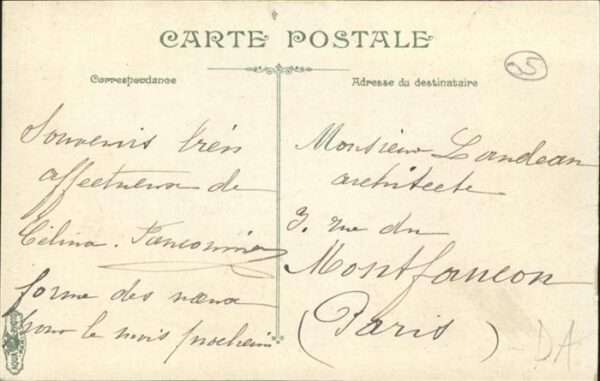 CARTE POSTALE
Correspondance
Adresse du destinataire
05
Souvenirs très
affectueux de
Célina
forme des vœux
pour le mois prochain
Monsieur Landeau
architecte
3, rue du
Montfaucon
(Paris)
DA